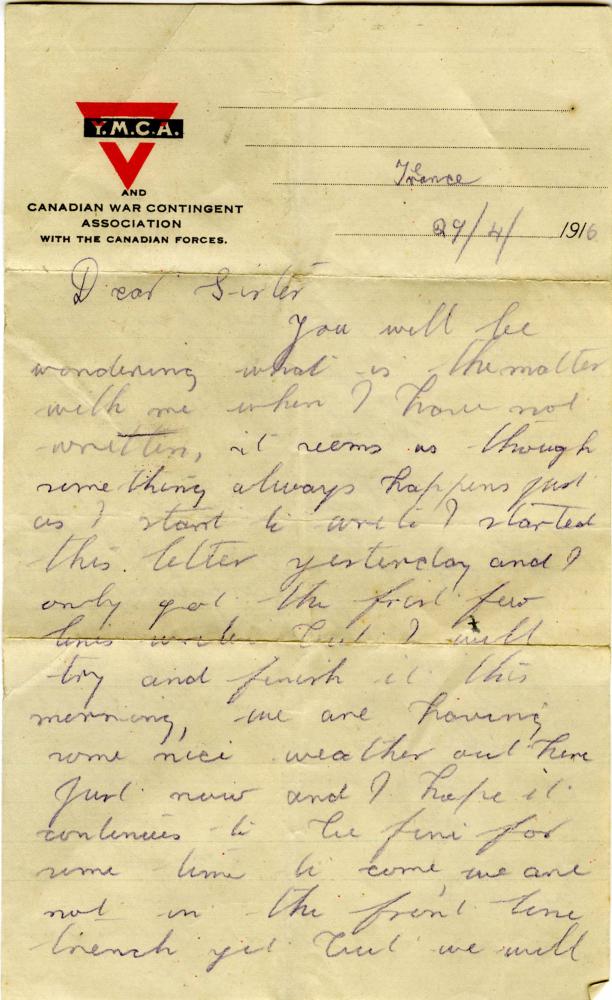 Y.M.C.A.
AND
CANADIAN WAR CONTINGENT
ASSOCIATION
WITH THE CANADIAN FORCES.
France
29/4/ 1916
Dear Sister
You will be
wondering what is the matter
with me when I have not
written, it seems as though
something always happens just
as I start to write I started
this letter yesterday and I
only got the frist few
lines but I will
try and finish it this
morning, we are having
some nice weather out here
just now and I hope it
contenues to be fine for
some time to come, we are
not in the front line
trench yet but we will